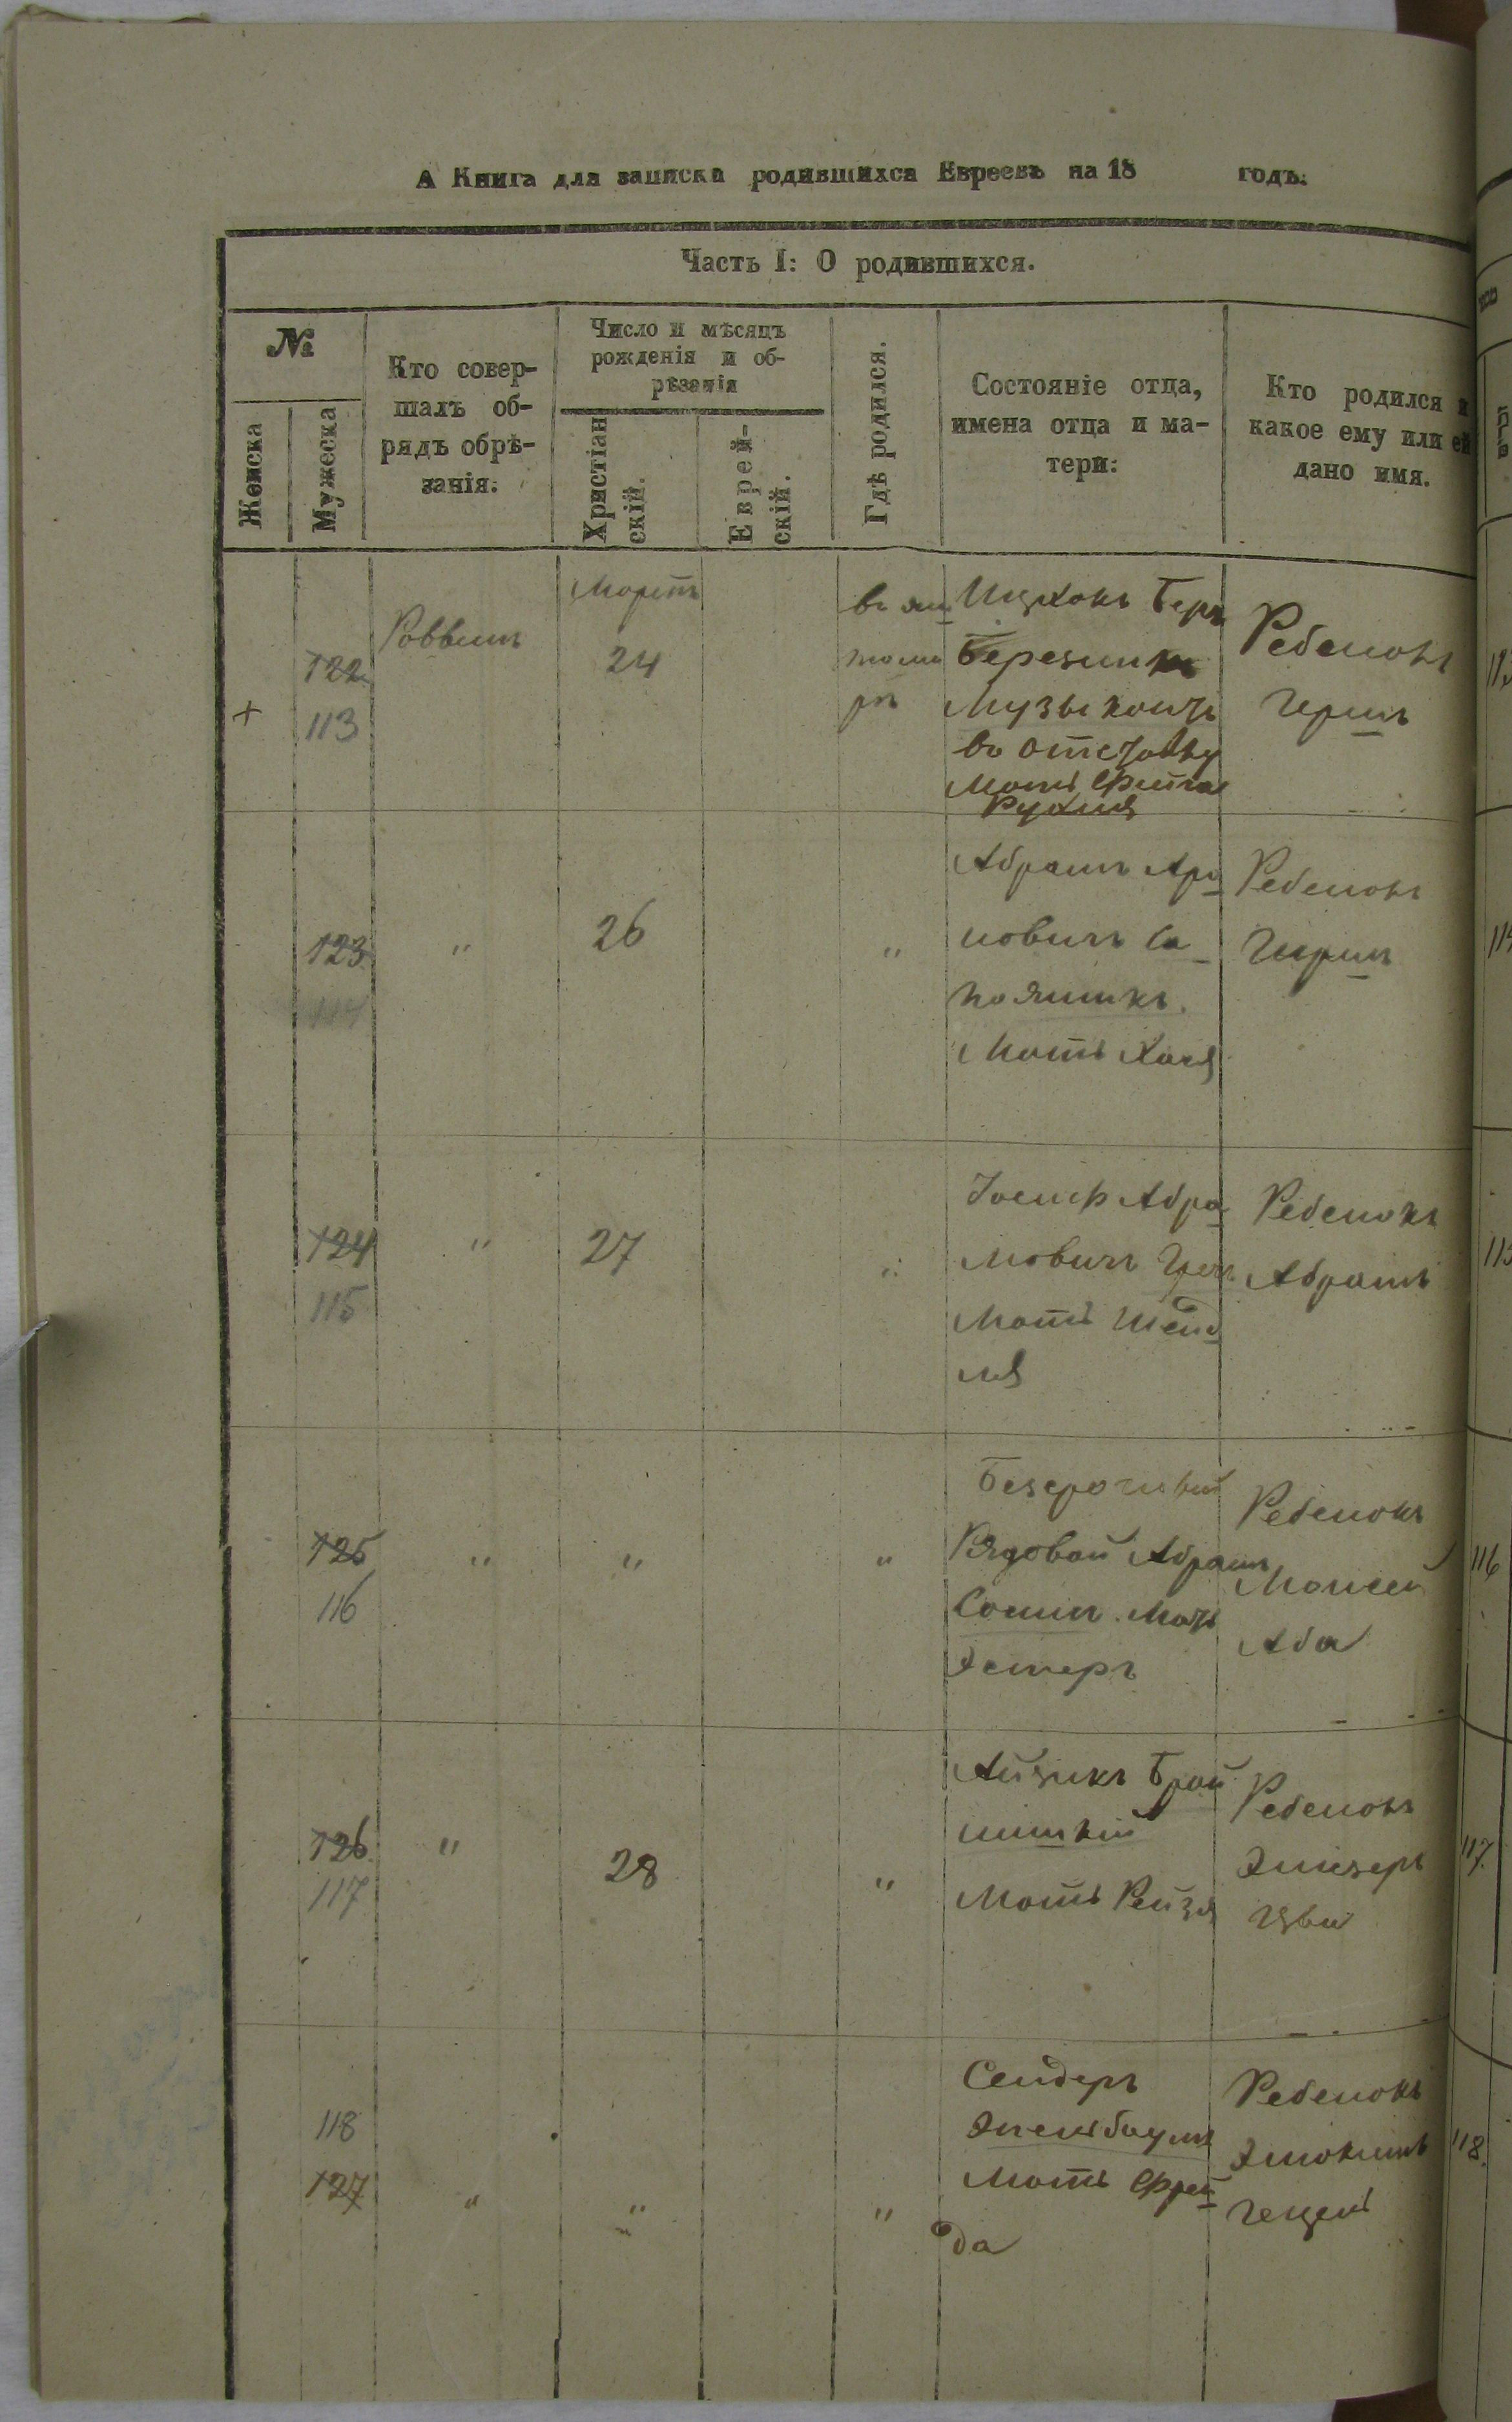 А Книга для записки родившихся Евреевъ на 18 годъ.
Часть I: О родившихся.
№
Женска
Мужеска
Кто совер-
шалъ об-
рядъ обрѣ-
занія:
Число и мѣсяцъ
рожденія и об-
рѣзанія
Христіан
скій.
Еврей-
скій.
Гдѣ родился.
Состояніе отца,
имена отца и ма-
тери:
Кто родился и
какое ему или ей
дано имя.
+
122
113
Раввинъ
Мартъ
24
въ жи
томи
рѣ
Ицхокъ Беръ
Березин
Музыкантъ
въ отставку
Мать Фейга
Рухля
Ребенокъ
Гершъ
123
114
"
26
"
Абрамъ Аро
новичъ Са
пожникъ.
Мать Хая
Ребенокъ
Гершъ
124
115
"
27
"
Іосифъ Абра
мовичъ
Мать Шейн
ля
Ребенокъ
Абрамъ
125
116
"
"
"
Безсрочный
Рядовой Абрамъ
Мать
Эстеръ
Ребенокъ
Моисей
Аба
126
117
"
28
"
Айзикъ Брай
Мать Рейзя
Ребенокъ
Элиезеръ
Цви
118
127
"
"
"
Сендеръ
Эпельбаумъ
Мать Фрей
да
Ребенокъ
Элиокимъ
Гецель
113
114
115
116
117
118.